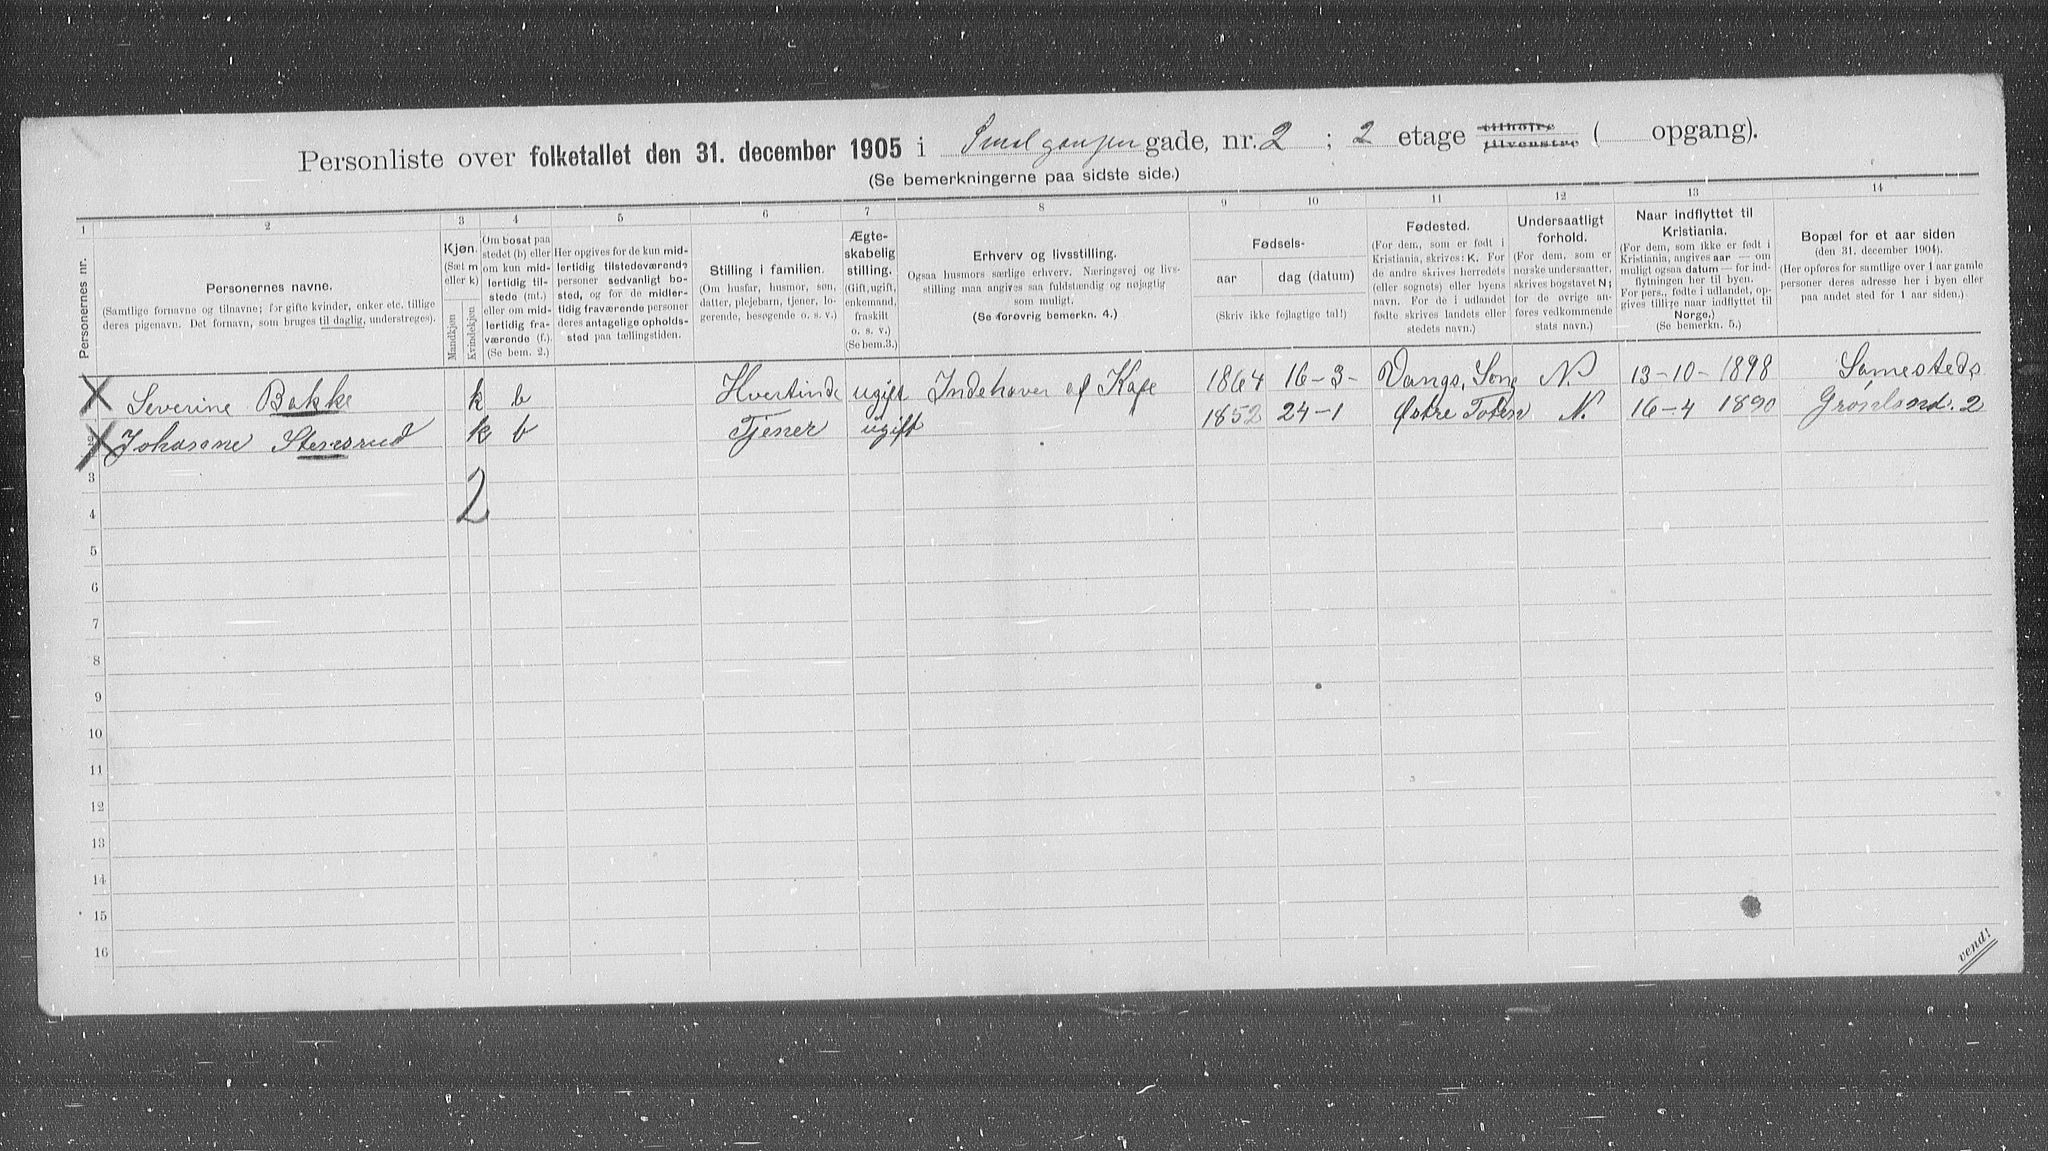 Personliste over folketallet den 31. december 1905 i Smalgangen gade, nr. 2 ; 2 etage tilhøjre tilvenstre ( opgang).
(Se bemerkningerne paa sidste side.)
1 2 3 4 5 6 7 8 9 10 11 12 13 14
Personernes nr.
Personernes navne.
(Samtlige fornavne og tilnavne; for gifte kvinder, enker etc. tillige
deres pigenavn. Det fornavn, som bruges til daglig, understreges).
Kjøn.
(Sæt m
eller k)
Mandkjøn
Kvindekjøn
Om bosat paa
stedet (b) eller
om kun mid-
lertidig til-
stede (mt.)
eller om mid-
lertidig fra-
værende (f.).
(Se bem. 2.)
Her opgives for de kun mid-
lertidig tilstedeværende
personer sedvanligt bo-
sted, og for de midler-
tidig fraværende personer
deres antagelige opholds-
sted paa tællingstiden.
Stilling i familien.
(Om husfar, husmor, søn,
datter, plejebarn, tjener, lo-
gerende, besøgende o. s. v.)
Ægte-
skabelig
stilling.
(Gift, ugift,
enkemand,
fraskilt
o. s. v.)
(Se bem.3.)
Erhverv og livsstilling.
Ogsaa husmors særlige erhverv. Næringsvej og livs-
stilling maa angives saa fuldstændig og nøjagtig
som muligt.
(Se forøvrig bemerkn. 4.)
Fødsels-
aar
dag (datum)
(Skriv ikke fejlagtige tal!)
Fødested.
(For dem, som er født i
Kristiania, skrives: K. For
de andre skrives herredets
(eller sognets) eller byens
navn. For de i udlandet
fødte skrives landets eller
stedets navn.)
Undersaatligt
forhold.
(For dem, som er
norske undersaatter,
skrives bogstavet N;
for de øvrige an-
føres vedkommende
stats navn.)
Naar indflyttet til
Kristiania.
(For dem, som ikke er født i
Kristiania, angives aar — om
muligt ogsaa datum — for ind-
flytningen her til byen.
For pers., fødte i udlandet, op-
gives tillige naar indflyttet til
Norge.)
(Se bemerkn. 5.)
Bopæl for et aar siden
(den 31. december 1904).
(Her opføres for samtlige over 1 aar gamle
personer deres adresse her i byen eller
paa andet sted for 1 aar siden.)
Severine Bakke k b Hvertinde ugift Indehaver af Kafe 1864 16-3- Vangs, Sogn N. 13-10-1898 Sameteds
Johanne Stensrud k b Tjener ugift 1852 24-1 Østre Toten N. 16-4 1890 Grønland. 2
3
2
4
5
6
7
8
9
10
11
12
13
14
15
16
vend!